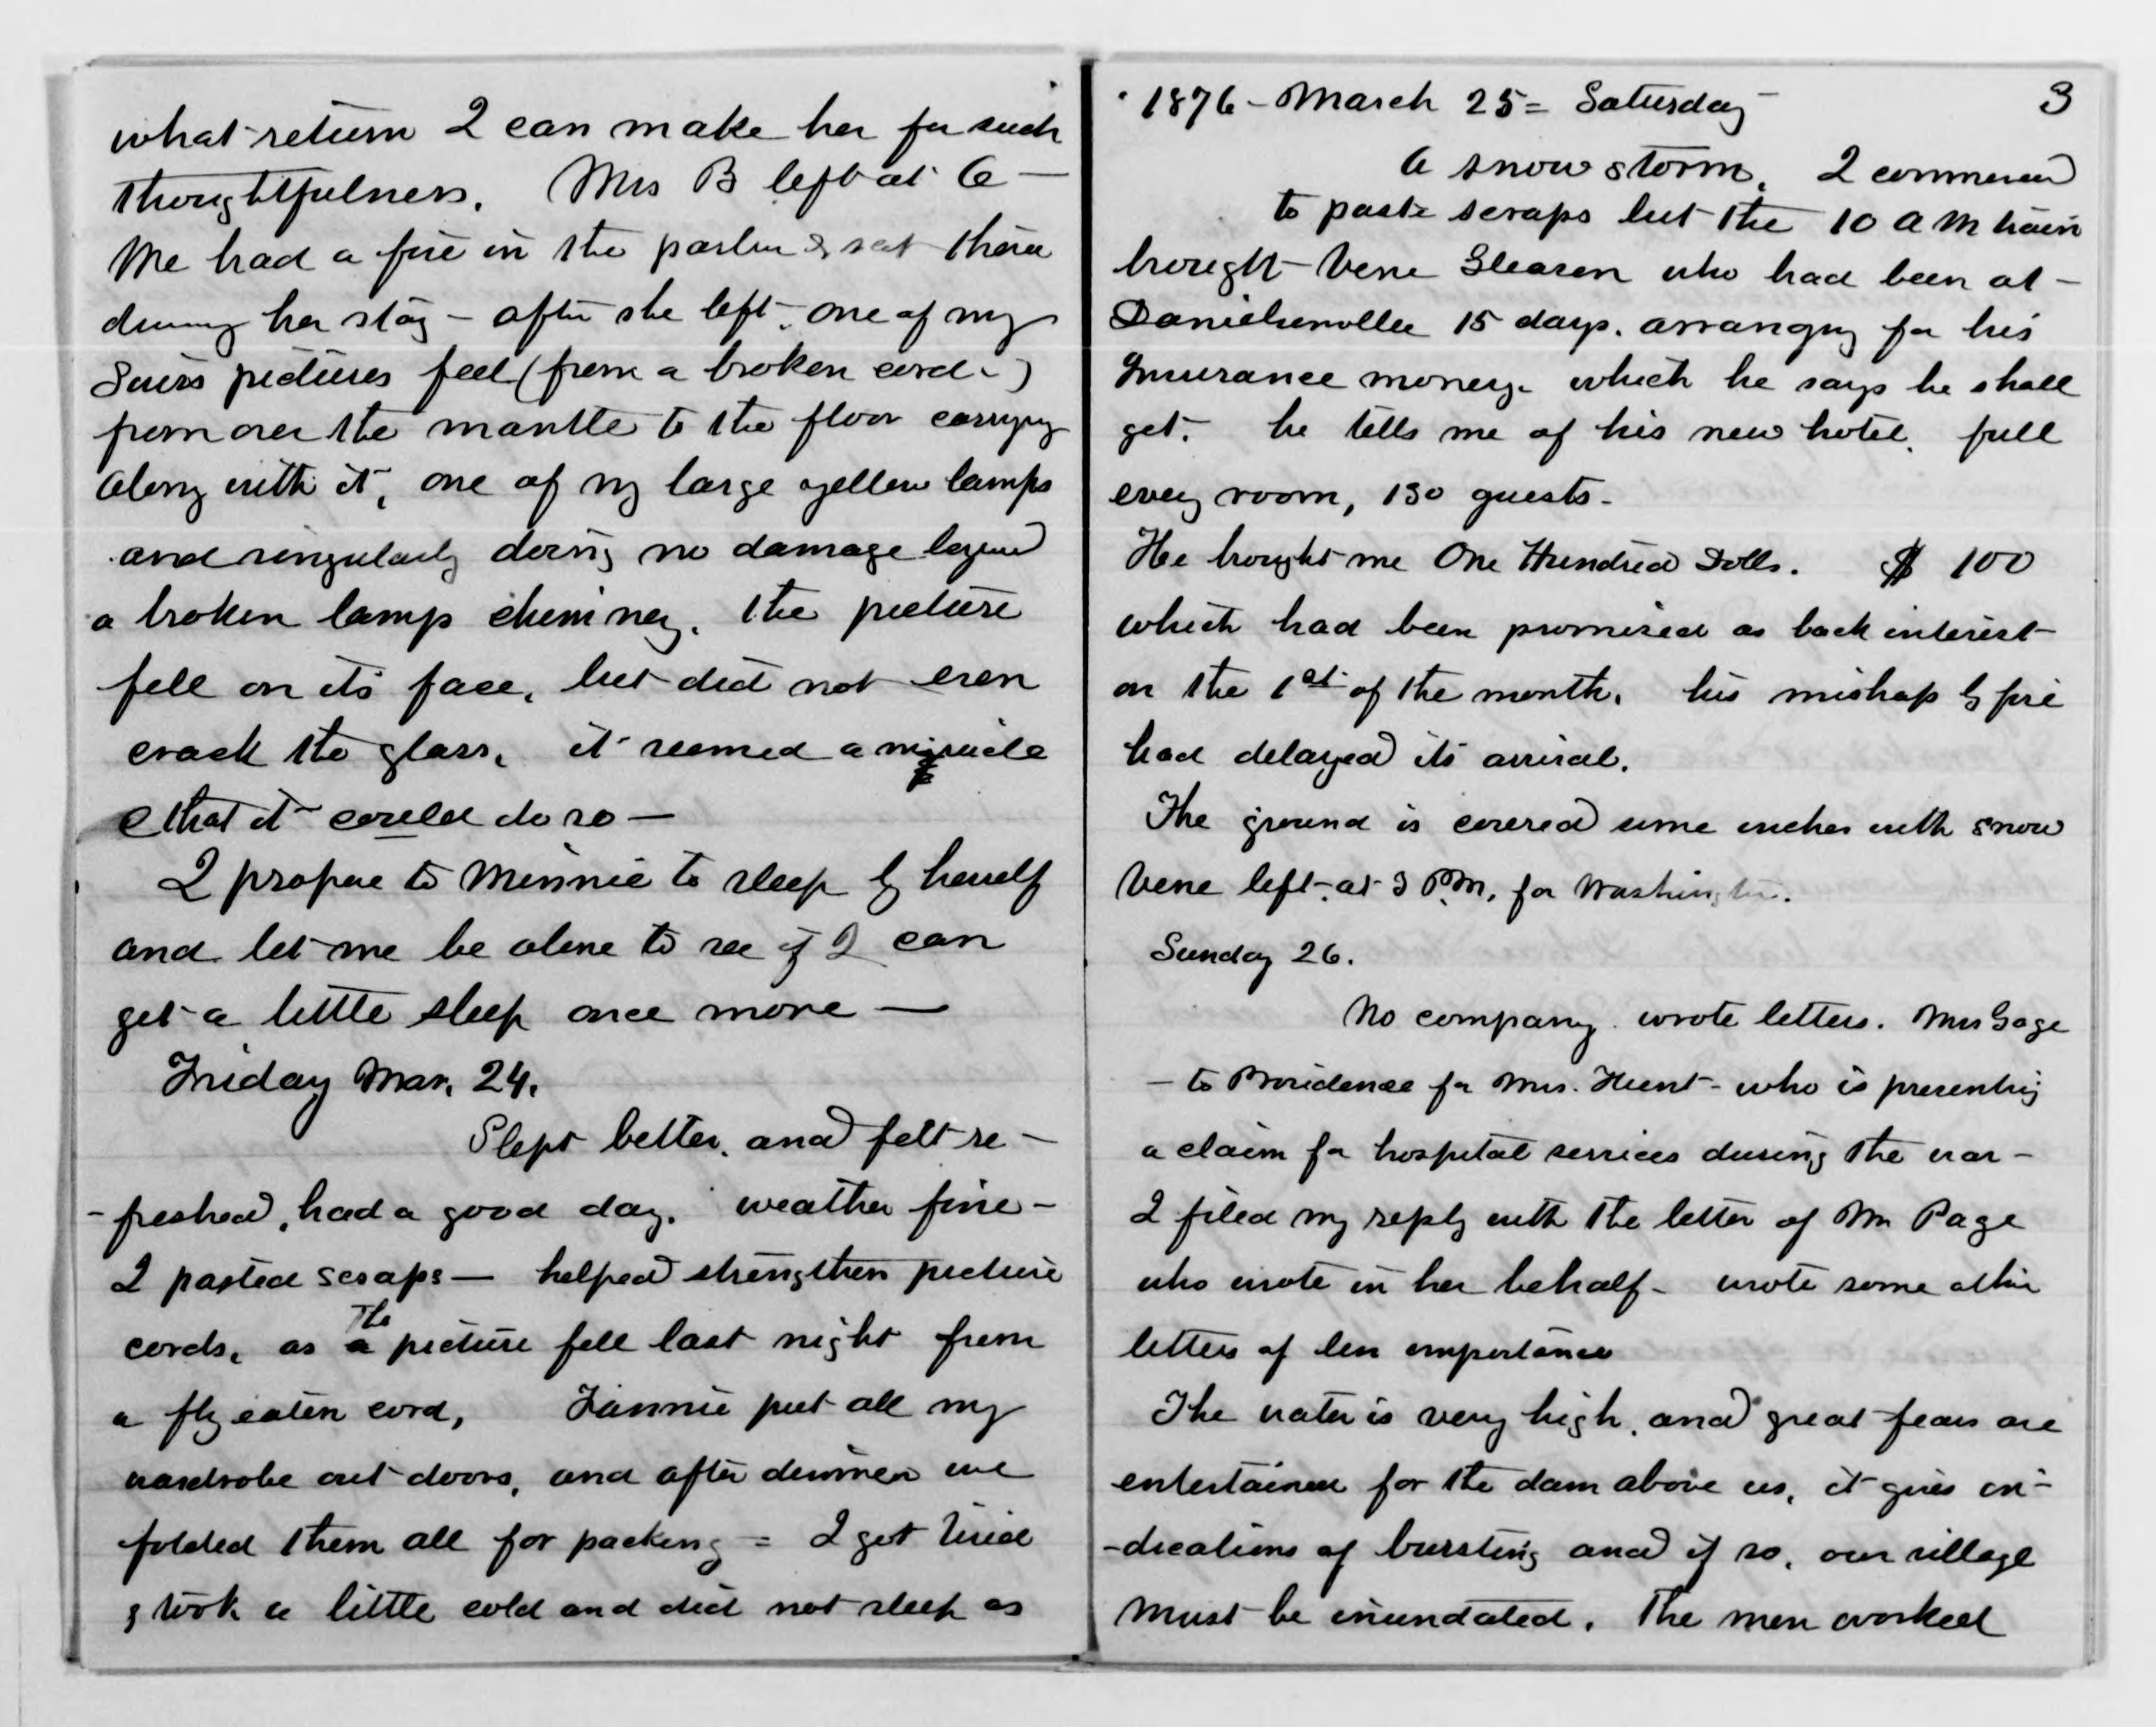 what return I can make her for such
thoughtfulness. Mrs B left at 6 —
We had a fire in the parlor & sat there
during her stay – after she left, one of my
Swiss pictures feel (from a broken cord –)
from over the mantle to the floor carrying
along with it, one of my large yellow lamps
and singularly doing no damage beyond
a broken lamp chimney. The picture
fell on its face, but did not even
crack the glass, it seemed a miracle
that it could do so —
I propose to Minnie to sleep by herself
and let me be alone to see if I can
get a little sleep once more —
Friday Mar. 24.
Slept better, and felt re –
- freshed, had a good day. weather fine –
I pasted scraps — helped strengthen picture
cords, as a The picture fell last night from
a fly eaten cord, Fannie put all my
wardrobe out doors, and after dinner we
folded them all for packing = I got tired
& took a little cold and did not sleep as
1876 – March 25 = Saturday – 3
A snow storm. I commenced
to paste scraps but the 10 A M train
brought Vene Gleason who had been at –
Danielsonville 15 days. arranging for his
Insurance money. which he says he shall
get. he tells me of his new hotel. full
every room, 130 guests –
He brought me One Hundred Dolls. $ 100
which had been promised as back interest
on the 1st of the month. his mishap by fire
had delayed its arrival.
The ground is covered some inches with snow
Vene left at 3 P.M. for Washington.
Sunday 26.
No company. wrote letters. Mrs Gage
– to Providence for Mrs. Hunt – who is presenting
a claim for hospital services during the war –
I filed my reply with the letter of Mr Page
who wrote in her behalf – wrote some other
letters of less importance
The water is very high, and great fears are
entertained for the dam above us, it gives in -
- dications of bursting and if so, our village
must be inundated. The men worked